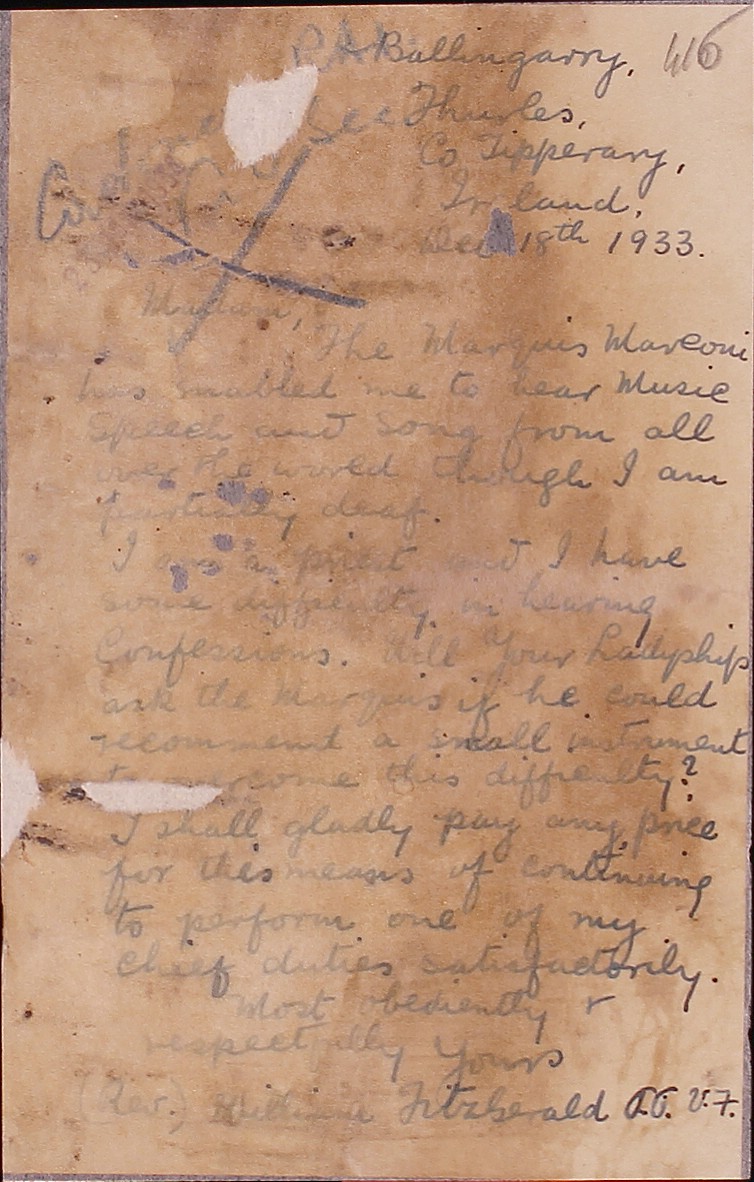 Ballingarry, 416
Thurles,
Co. Tipperary,
Ireland,
Dec 18th 1933.
Madam,
The Marquis Marconi
has enabled me to hear Music
Speech and Song from all
over the world though I am
partially deaf.
I am a priest and I have
some difficulty in hearing
Confessions. Will Your Ladyship
ask the Marquis if he could
recommend a small instrument
to overcome this difficulty?
I shall gladly pay any price
for this means of continuing
to perform one of my
chief duties satisfactorily.
Most obediently &
respectfully Yours
(Rev.) William Fitzgerald P.P. V.F.